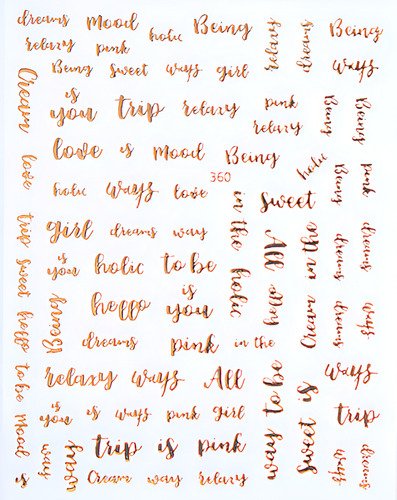 dreams mood holic Being relaxy dreams Being
relaxy pink
Being sweet ways girl ways
Cream love trip sweet hello to be mood is
is
you trip relaxy pink Being Being
relaxy
love is mood Being
360
holic
holic ways love sweet Being pink
in the holic
girl dreams way All Cream in the dreams dreams
is
you holic to be
Being
hello is
you hello dreams ways
dreams pink in the
relaxy ways All way to be sweet is ways
is
you is ways pink girl trip
way
trip is pink ways dreams
Cream way relaxy